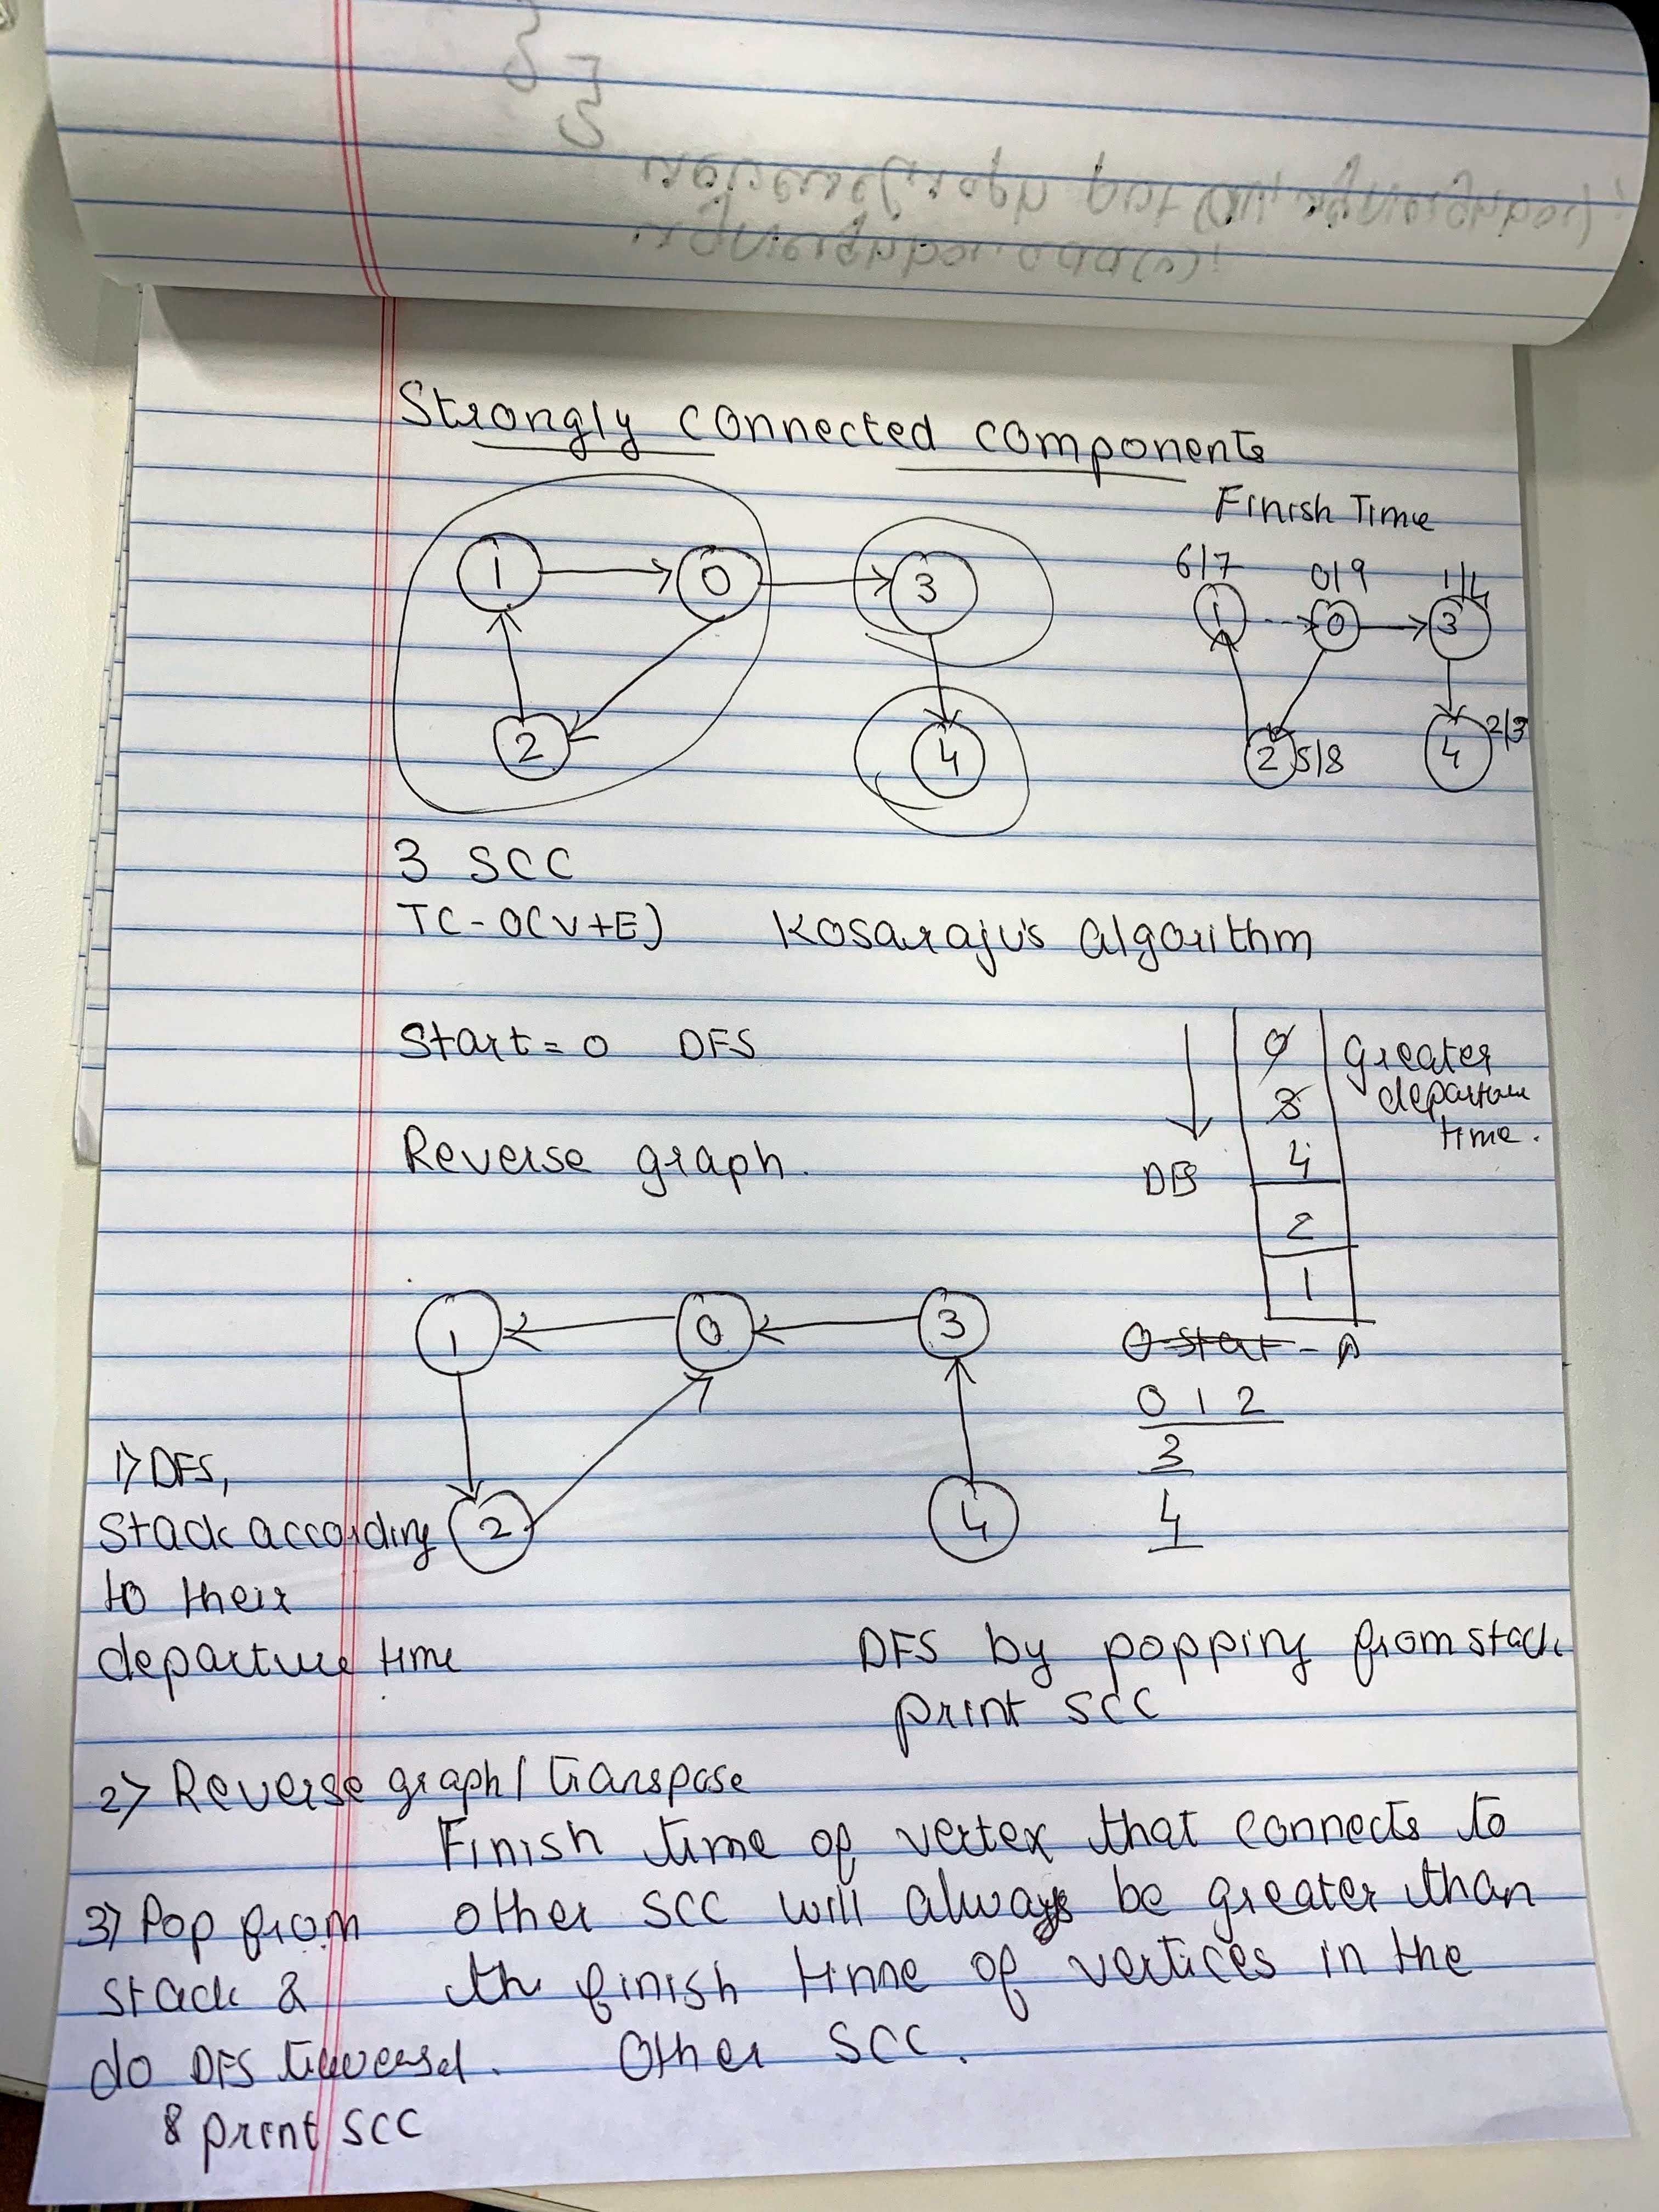 Strongly connected components
Finish Time
1 0 3
2 4
6/7 0/9 1/4
1 0 3
2 5/8 4 2/3
3 SCC
TC - O(V+E) Kosaraju's algorithm
Start = 0 DFS
Reverse graph.
0
3
4
2
1
Greater
departure
time.
DFS
1 0 3
2 4
0 start -
0 1 2
3
4
1) DFS,
Stack according
to their
departure time
DFS by popping from stack
print SCC
2) Reverse graph / transpose
Finish time of vertex that connects to
other SCC will always be greater than
th finish time of vertices in the
other SCC.
3) Pop from
stack &
do DFS traversal.
& print SCC